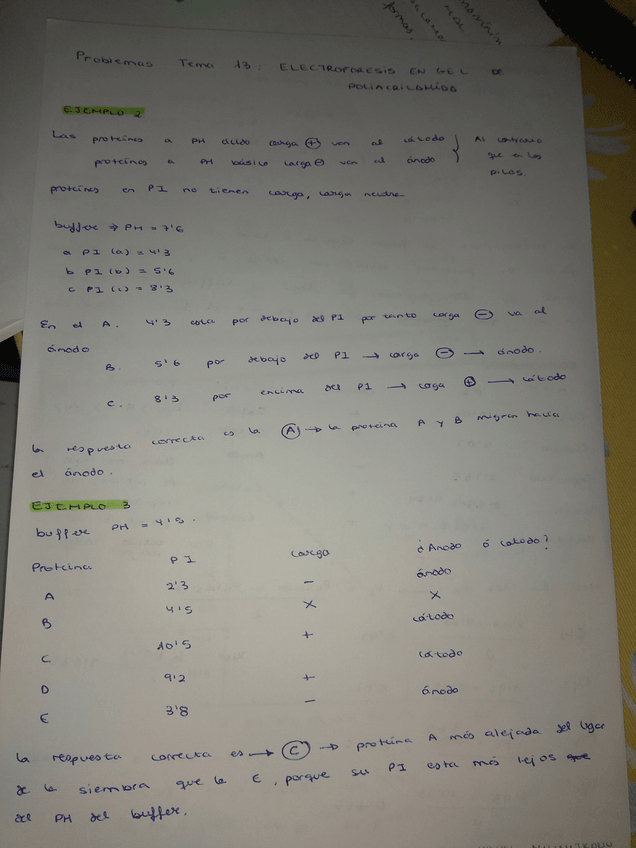 Problemas Tema 13: ELECTROFORESIS EN GEL DE
POLIACRILAMIDA
EJEMPLO 2
Las proteínas a PH ácido carga ⊕ van al cátodo } Al contrario
proteínas a PH básico carga ⊖ van al ánodo } que en las
pilas.
proteínas en PI no tienen carga, carga neutra
buffer ⇒ PH = 7'6
a PI (a) = 4'3
b PI (b) = 5'6
c PI (c) = 8'3
En el A. 4'3 esta por debajo del PI por tanto carga ⊖ va al
ánodo
B. 5'6 por debajo del PI → carga ⊖ → ánodo.
C. 8'3 por encima del PI → caga ⊕ → cátodo
la respuesta correcta es la Ⓐ → la proteina A y B migran hacia
el ánodo.
EJEMPLO 3
buffer PH = 4'5.
Proteina PI carga ¿Anodo ó catodo?
A 2'3 - ánodo
B 4'5 X X
C 10'5 + cátodo
D 9'2 + cátodo
E 3'8 - ánodo
la respuesta correcta es → Ⓒ → proteína A más alejada del lugar
de la siembra que la E, porque su PI esta más lejos que
del PH del buffer.